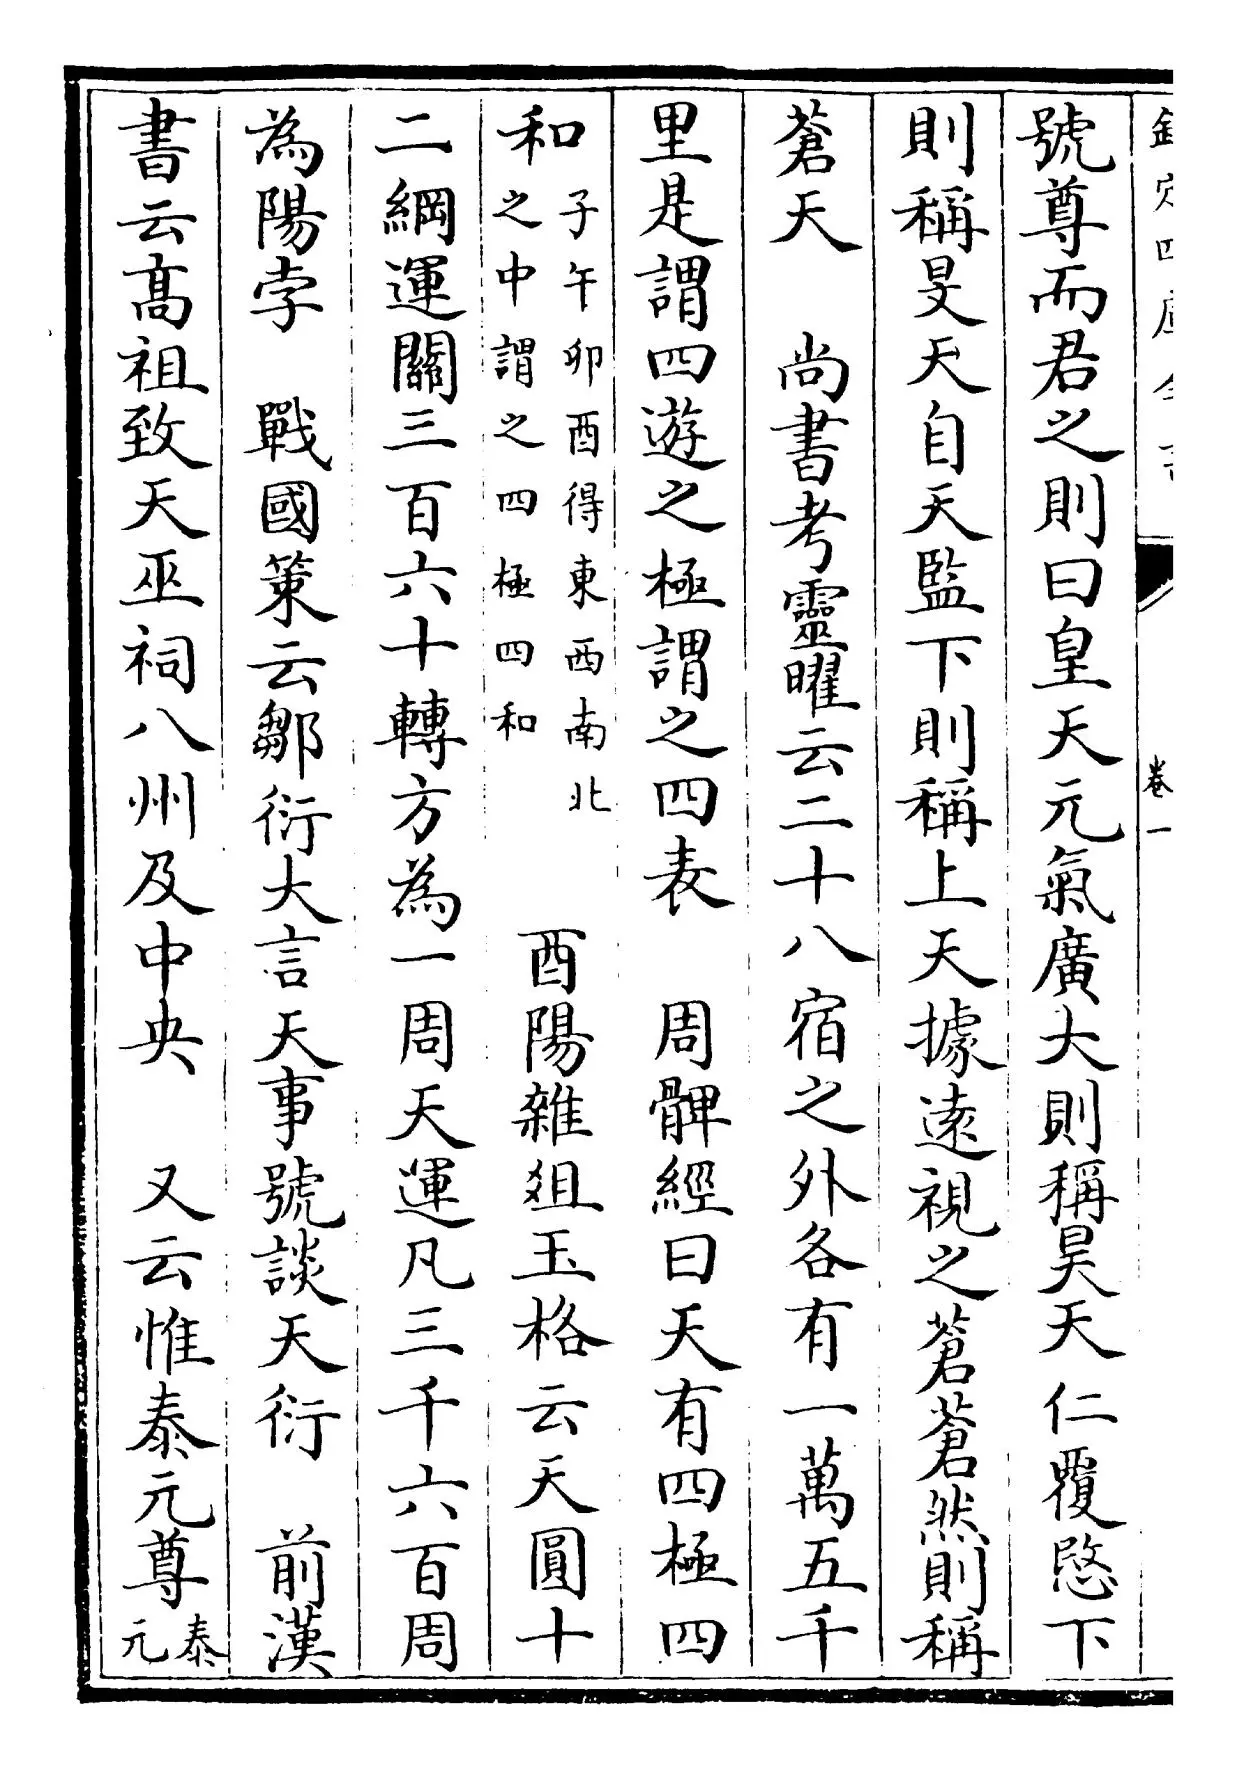 欽定四庫全書 卷一
號尊而君之則曰皇天元氣廣大則稱昊天仁覆愍下
則稱旻天自天監下則稱上天據遠視之蒼蒼然則稱
蒼天 尚書考靈曜云二十八宿之外各有一萬五千
里是謂四遊之極謂之四表 周髀經曰天有四極四
和子午卯酉得東西南北之中謂之四極四和 酉陽雜俎玉格云天圓十
二綱運關三百六十轉方為一周天運凡三千六百周
為陽孛 戰國策云鄒衍大言天事號談天衍 前漢
書云髙祖致天巫祠八州及中央 又云惟泰元尊泰元